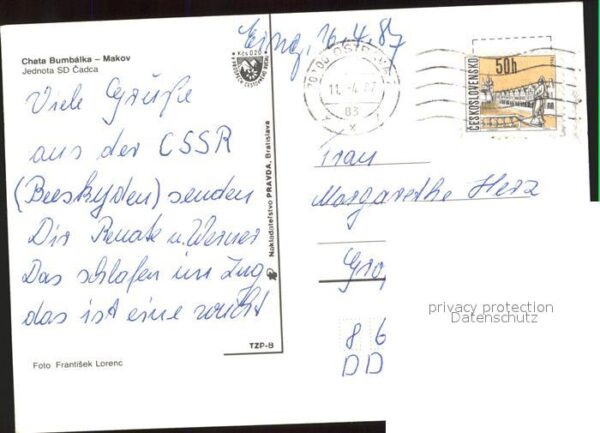 Chata Bumbálka – Makov
Jednota SD Čadca
Kčs 0,20
Eing. 16.4.87
11.-4.87
83
x
50h
ČESKOSLOVENSKO
Viele Grüße
aus der CSSR
(Beeskyden) senden
Dir Renate u. Werner
Das schlafen im Zug
das ist eine wucht
Nakladateľstvo PRAVDA, Bratislava
TZP-8
Foto František Lorenc
Frau
Margarethe Herz
Gro
8 6
DD
privacy protection
Datenschutz